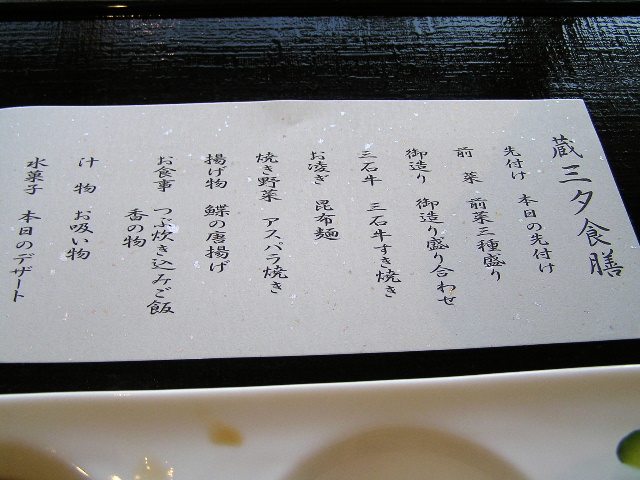 蔵三夕食膳
先付け 本日の先付け
前菜 前菜三種盛り
御造り 御造り盛り合わせ
三石牛 三石牛すき焼き
お凌ぎ 昆布麺
焼き野菜 アスパラ焼き
揚げ物 鰈の唐揚げ
お食事 つぶ炊き込みご飯
香の物
汁物 お吸い物
水菓子 本日のデザート